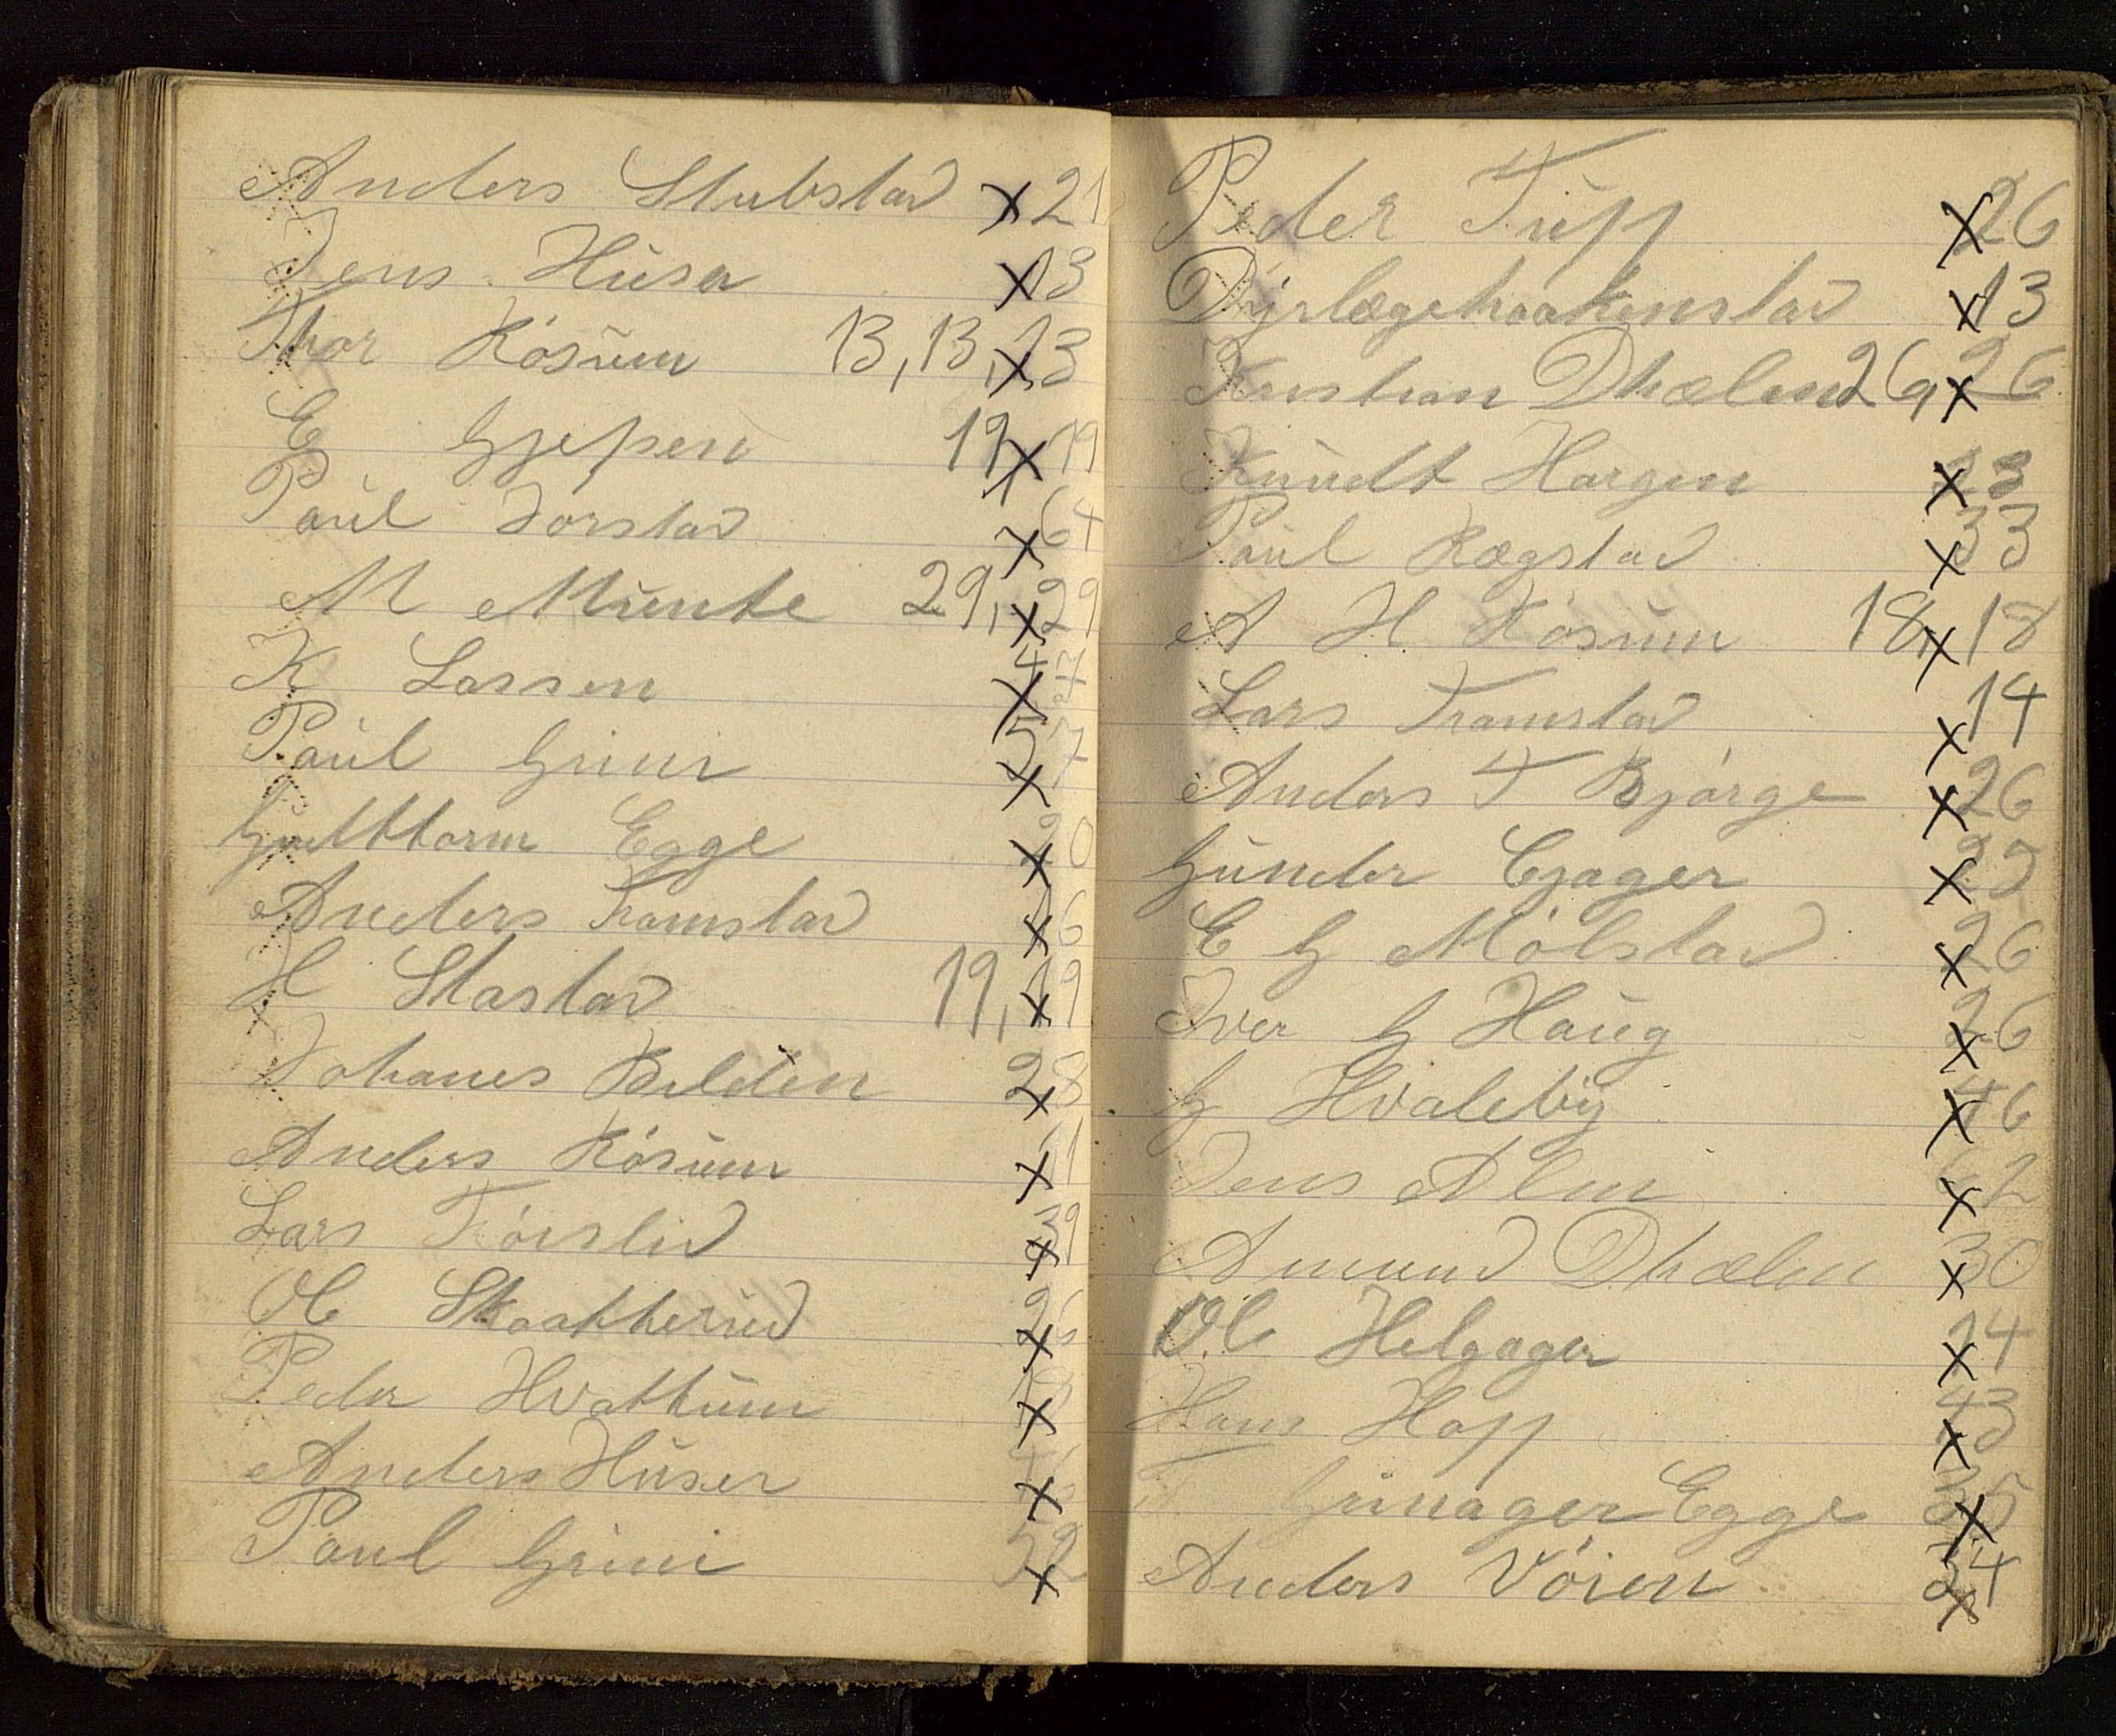 Anders Stubstad x 21
Jens Husa x 13
Thor Røsŭm 13, 13, x 13
E Gjepen 19, x 19
Paŭl Jorstad x 64
M Mŭnte 29, x 29
K Lassen x 47
Paŭl Grini x 57
Gŭtttorm Egge x 20
Anders Tramstad x 16
H Stastad 19, x 19
Johanes Bilden x 28
Anders Røsŭm x 11
Lars x 39
Ole x 26
Peder Hvattŭm x
Anders Hŭser x
Paul Grini x 52
Peder Tŭpp x 26
Dyrlægehaakenstad x 13
Kristian Dhælen 26, x 26
Knŭdt Hargen x
Paŭl Rægstad x 33
A H Røsŭm 18, x 18
Lars Tramstad x 14
Anders T Bjørge x 26
Gŭnder x
E G Mølstad x 26
Iver G Haŭg x 26
G Hvaleby x 46
Jens Alm x 62
Amund Dhælen x 30
Ole Helgager x 14
Hans Hopp x 43
Grinager Egge x 35
Anders Vøien x 34